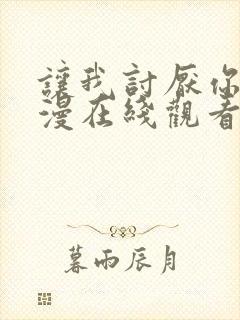 讓我討厭你
漫在綫觀看
暮雨辰月